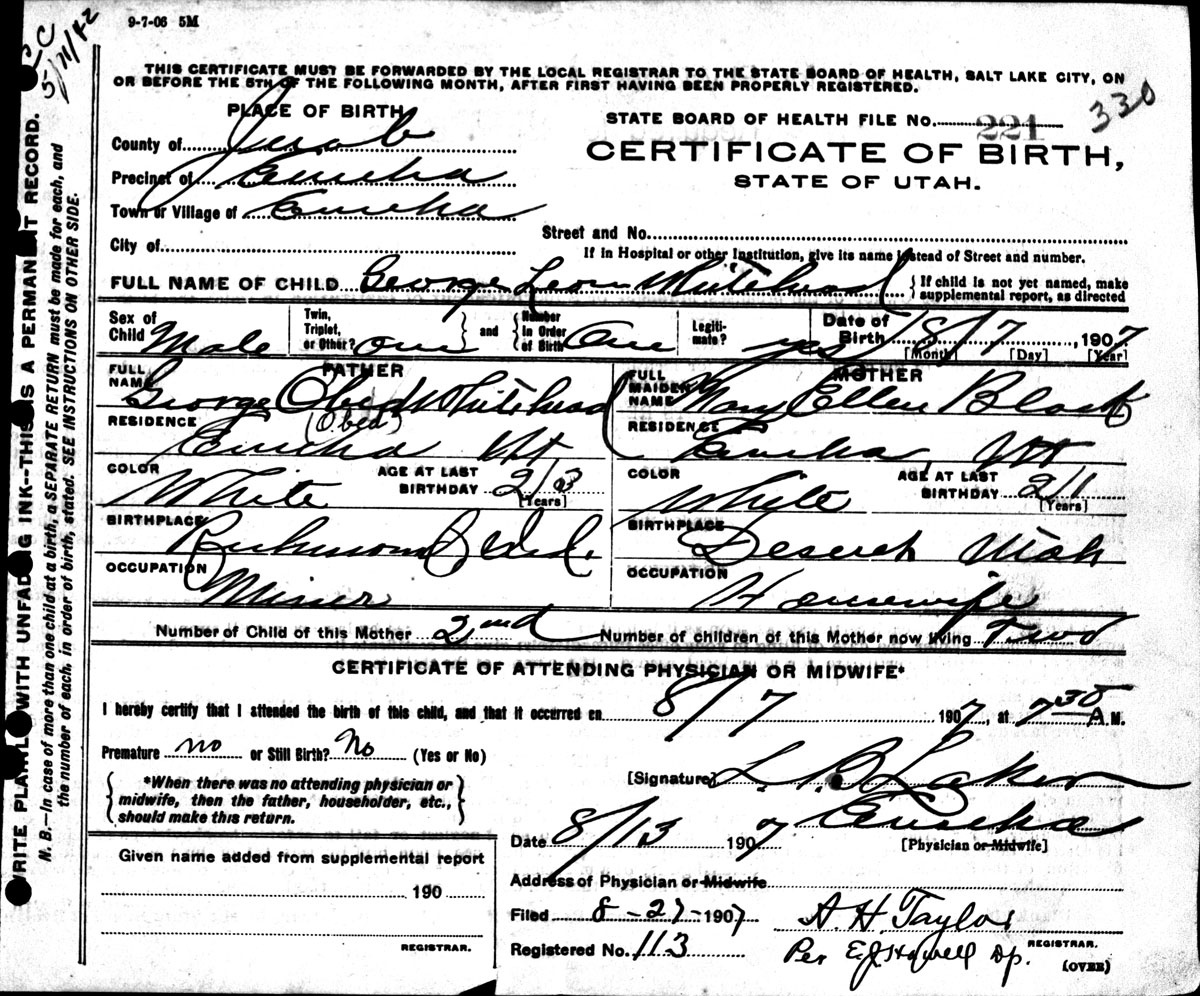 9-7-06 5M
5/21/42
THIS CERTIFICATE MUST BE FORWARDED BY THE LOCAL REGISTRAR TO THE STATE BOARD OF HEALTH, SALT LAKE CITY, ON
OR BEFORE THE 5TH OF THE FOLLOWING MONTH, AFTER FIRST HAVING BEEN PROPERLY REGISTERED.
330
PLACE OF BIRTH
STATE BOARD OF HEALTH FILE No. 221
County of Juab
CERTIFICATE OF BIRTH,
Precinct of Eureka
STATE OF UTAH.
Town or Village of Eureka
Street and No.
City of
If in Hospital or other Institution, give its name instead of Street and number.
FULL NAME OF CHILD George Leon Whitehead {If child is not yet named, make supplemental report, as directed
Sex of Child Male Twin, Triplet, or Other? one and Number in Order of Birth One Legiti-mate? yes Date of Birth 8/7, 1907 [Month] [Day] [Year]
FATHER
MOTHER
FULL NAME George Obed Whitehead
FULL MAIDEN NAME Mary Ellen Black
RESIDENCE (Obed) Eureka Ut
RESIDENCE Eureka Ut
COLOR White AGE AT LAST BIRTHDAY 23 [Years]
COLOR White AGE AT LAST BIRTHDAY 21 [Years]
BIRTHPLACE Richmond
BIRTHPLACE Deseret Utah
OCCUPATION Miner
OCCUPATION Housewife
Number of Child of this Mother 2nd Number of children of this Mother now living Two
CERTIFICATE OF ATTENDING PHYSICIAN OR MIDWIFE*
I hereby certify that I attended the birth of this child, and that it occurred on 8/7 1907, at 7 30 A.M.
Premature no or Still Birth? No (Yes or No)
{*When there was no attending physician or midwife, then the father, householder, etc., should make this return.}
[Signature] L. B. Laker
Eureka
Date 8/13 1907 [Physician or Midwife]
Given name added from supplemental report
190
REGISTRAR.
Address of Physician or Midwife
Filed 8-27-1907 A. H. Taylor
REGISTRAR.
Registered No. 113 Per E. J. Howell Dp.
(OVER)
WRITE PLAINLY WITH UNFADING INK--THIS IS A PERMANENT RECORD.
N. B.—In case of more than one child at a birth, a SEPARATE RETURN must be made for each, and
the number of each, in order of birth, stated. SEE INSTRUCTIONS ON OTHER SIDE.